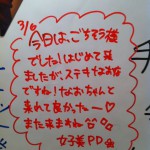 3/6
今日は、ごちそう様
でした!はじめて来
ましたが、ステキなお店
ですね!なおちゃんと
来れて良かったー♡
また来ますね
女子美PD